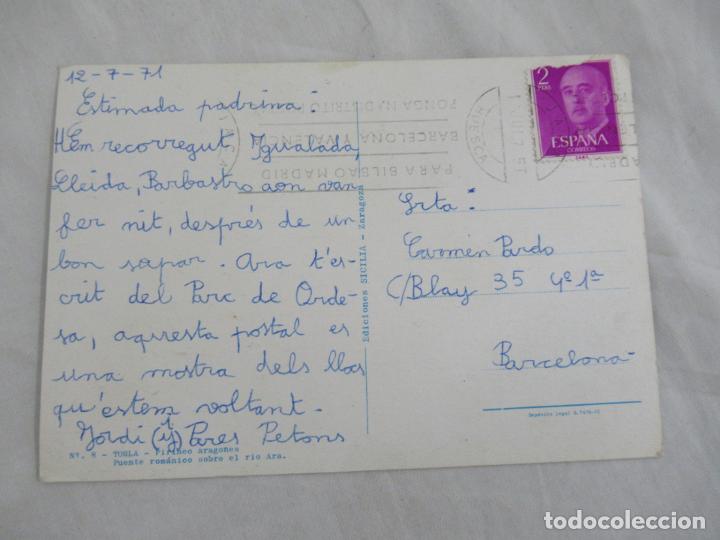 12-7-71
Estimada padrina:
HEm recorregut Igualada,
Lleida, Barbastro aon van
fer nit, després de un
bon sopar. Ara t'es-
crit del Parc de Orde-
sa, aquesta postal es
una mostra dels llocs
qu'estem voltant.
Jordi (i) Pares Petons
Nº. 8 - TORLA - Pirineo aragones
Puente románico sobre el rio Ara.
Ediciones SICILIA - Zaragoza
PONGA Nº DISTRITO
BARCELONA Y VALENCIA
PARA BILBAO MADRID
HUESCA
2
PTAS
ESPAÑA
CORREOS
Srta:
Carmen Pardo
C/Blay 35 4º 1ª
Barcelona
Depósito legal
todocoleccion
todocoleccion.net